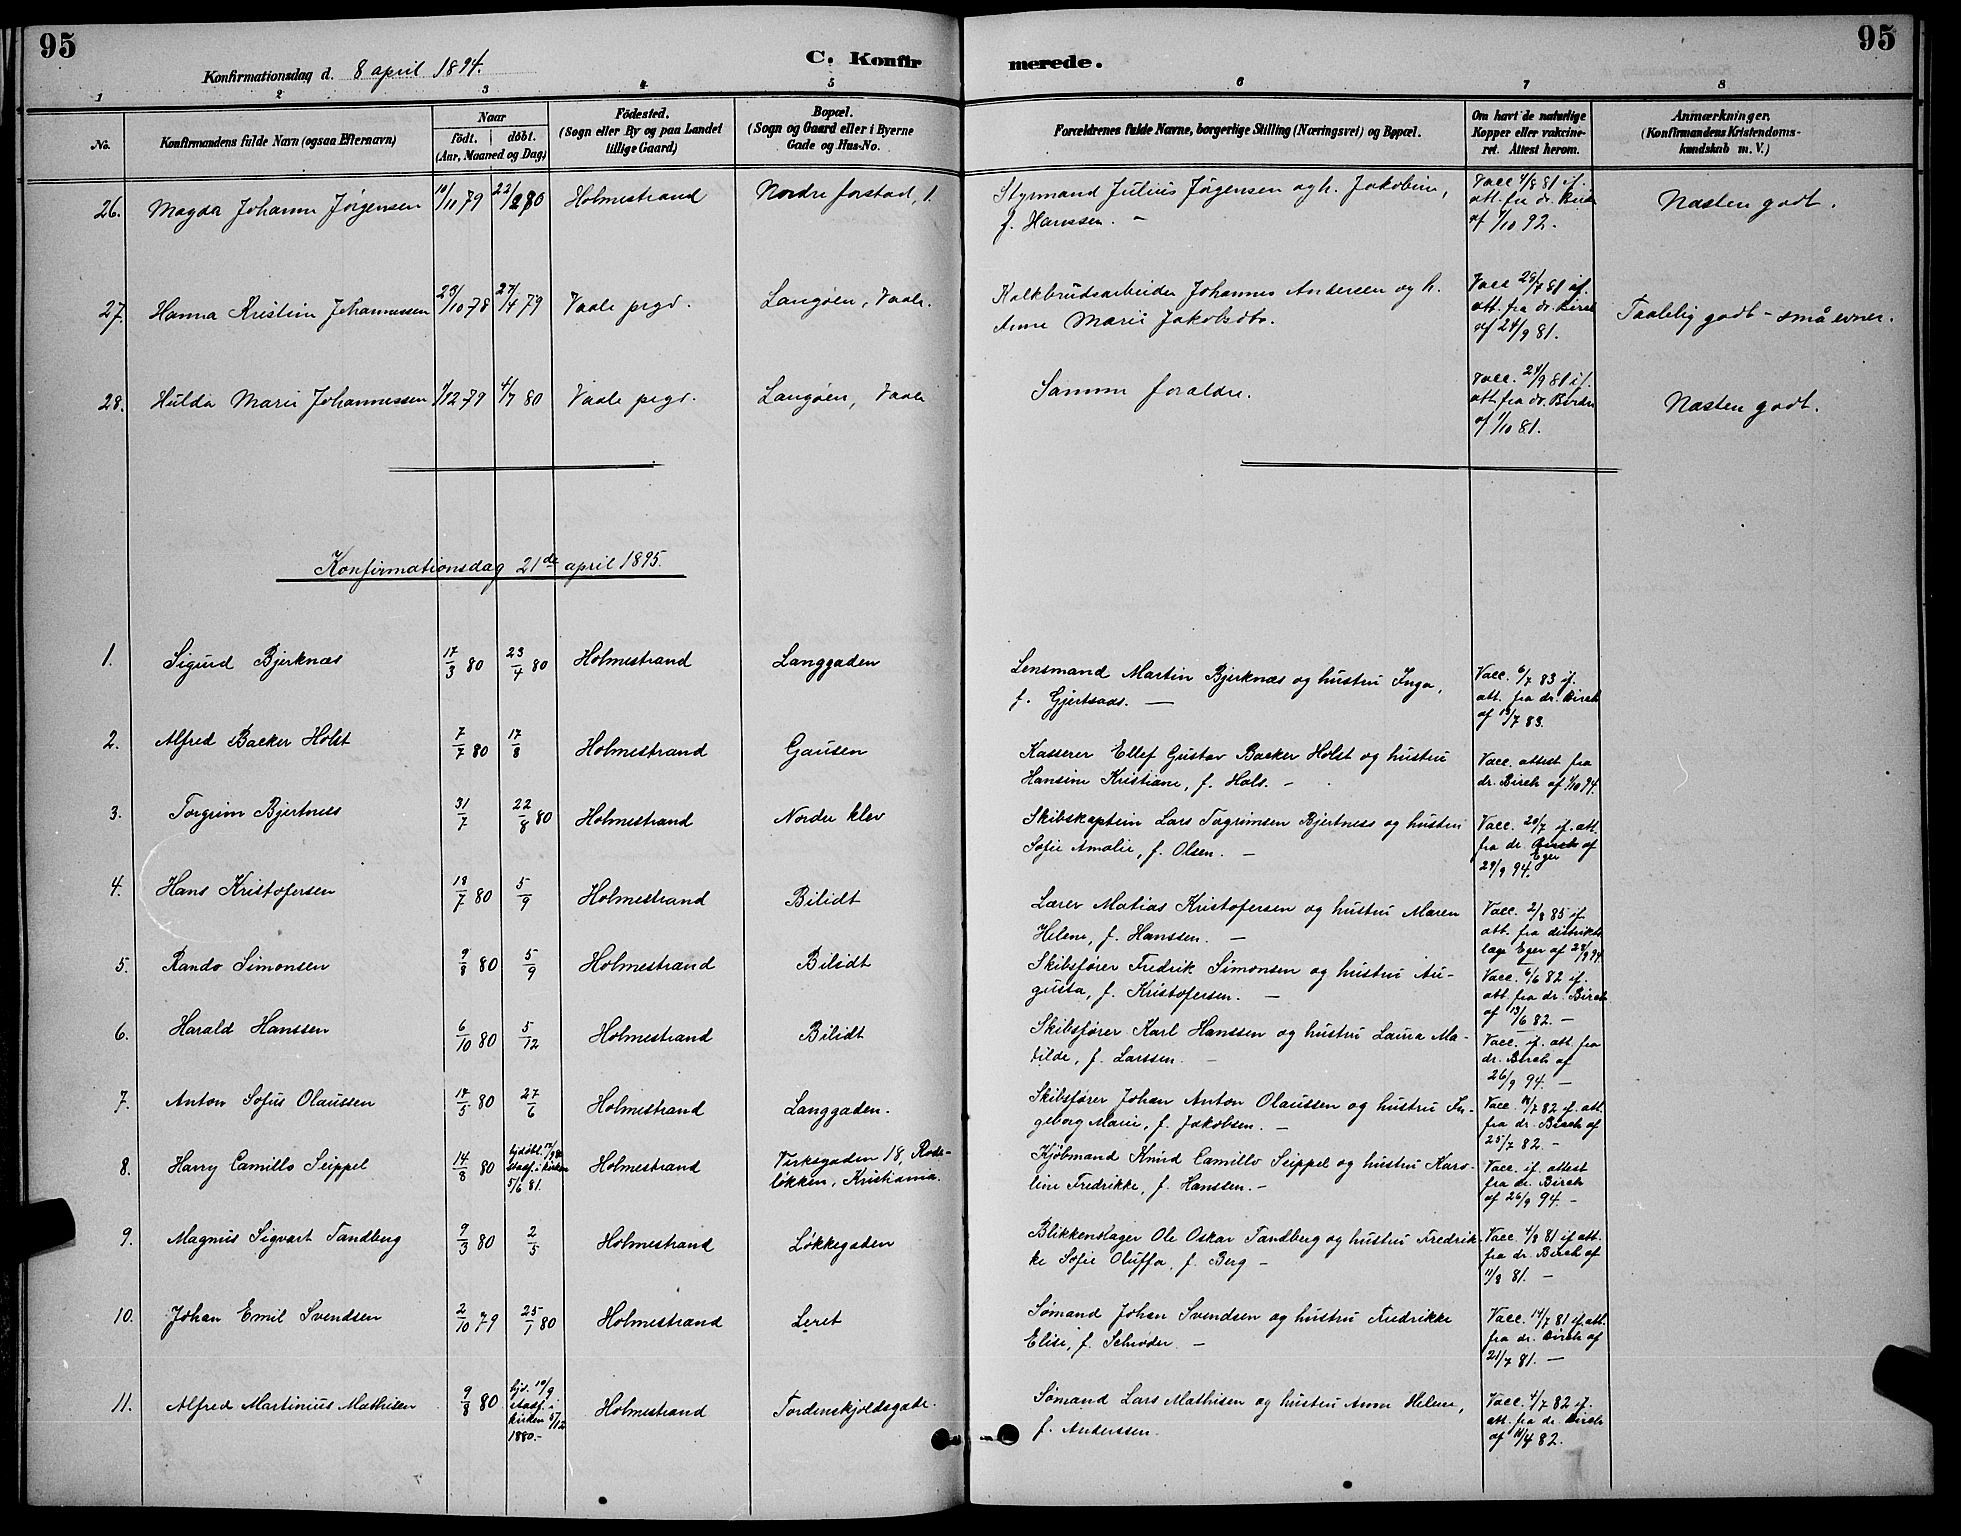 95
95
Konfirmationsdag d. 8 april 1894.
C. Konfir
merede.
1 2 3 4 5 6 7 8
No.
Konfirmandens fulde Navn (ogsaa Efternavn)
Naar
födt. döbt.
(Aar, Maaned og Dag)
Födested.
(Sogn eller By og paa Landet
tillige Gaard)
Bopæl.
(Sogn og Gaard eller i Byerne
Gade og Hus-No.
Forældrenes fulde Navne, borgerlige Stilling (Næringsvei) og Bopæl.
Om havt de naturlige
Kopper eller vakcine-
ret. Attest herom.
Anmærkninger.
(Konfirmandens Kristendoms-
kundskab m. V.)
26. Magda Johanne Jørgensen 10/11 79 22/2 80 Holmestrand Nordre forstad, 1.
Styrmand Julius Jørgensen og h. Jakobine,
f. Hanssen. -
Vacc 4/8 81 if.
att. fra dr. Birch
af 1/10 92.
Næsten godt.
27. Hanna Kristine Johannessen 23/10 78 27/4 79 Vaale prgd. Langøen, Vaale.
Kalkbrudsarbeider Johannes Andersen og h.
Anne Marie Jakobsdtr.
Vacc 29/7 81 if.
att. fra dr. Birch
af 24/9 81.
Taalelig godt - små evner.
28. Hulda Marie Johannessen 1/12 79 4/7 80 Vaale prgd. Langøen, Vaale
Samme forældre.
Vacc. 24/9 81 if.
att. fra dr. Birch
af 1/10 81.
Næsten godt.
Konfirmationsdag 21de april 1895.
1. Sigurd Bjerknæs 17/3 80 23/4 80 Holmestrand Langgaden
Lensmand Martin Bjerknæs og hustru Inga,
f. Gjertsaas. -
Vacc. 6/7 83 if.
att. fra dr. Birch
af 13/7 83.
2. Alfred Backer Holst 7/7 80 17/8 Holmestrand Gausen
Kasserer Ellef Gustav Backer Holst og hustru
Hansine Kristiane, f. Hals. -
Vacc. attest fra
dr. Birch af 1/10 94.
3. Torgrim Bjertness 31/7 22/8 80 Holmestrand Nordre klev
Skibskaptein Lars Togrimsen Bjertness og hustru
Sofie Amalie, f. Olsen. -
Vacc. 20/7 if. att.
fra dr. Birch af
Eger
29/9 94.
4. Hans Kristofersen 18/7 80 5/9 Holmestrand Bilidt
Lærer Matias Kristofersen og hustru Maren
Helene, f. Hanssen. -
Vacc. 2/8 85 if
att. fra distrikts
læge Eger af 28/9 94.
5. Rando Simonsen 9/8 80 5/9 Holmestrand Bilidt
Skibsfører Fredrik Simonsen og hustru Au-
gusta, f. Kristofersen. -
Vacc. 6/6 82 if.
att. fra dr. Birch
af 13/6 82. -
6. Harald Hanssen 6/10 80 5/12 Holmestrand Bilidt
Skibsfører Karl Hanssen og hustru Laura Ma-
tilde, f. Larssen. -
Vacc. if. att. fra
dr. Birch af
26/9 94. -
7. Anton Sofus Olaussen 17/5 80 27/6 Holmestrand Langgaden.
Skibsfører Johan Anton Olaussen og hustru In-
geborg Marie, f. Jakobsen. -
Vacc. 18/7 82 if. att.
fra dr. Birch af
25/7 82. -
8. Harry Camillo Seippel 14/8 80 hjdøbt. 17/9 80 Holmestrand Verksgaden 18, Rode-
stadf. i kirken
5/6 81.
løkken, Kristiania.
Kjøbmand Knud Camillo Seippel og hustru Karo-
line Fredrikke, f. Hanssen. -
Vacc. if. attest
fra dr. Birch
af 26/9 94. -
9. Magnus Sigvart Tandberg 9/3 80 2/5 Holmestrand Løkkegaden
Blikkenslager Ole Oskar Tandberg og hustru Fredrik-
ke Sofie Oluffa, f. Berg -
Vacc. 4/8 81 if att.
fra dr. Birch af
11/8 81. -
10. Johan Emil Svendsen 2/10 79 25/1 80 Holmestrand Leret
Sømand Johan Svendsen og hustru Fredrikke
Elise, f. Schrøder. -
Vacc. 14/7 81 if. att.
fra dr. Birch af
21/7 81. -
11. Alfred Martinius Mathisen 9/8 80 hjd. 10/9 Holmestrand Tordenskjoldsgade.
stadf. i
kirken 5/12
1880.-
Sømand Lars Mathisen og hustru Anne Helene,
f. Anderssen.
Vacc. 4/7 82 if.
att. fra dr. Birch
af 11/7 82.